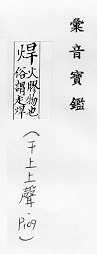 彙音寶鑑
焊
火際物也
俗謂走焊
（干上上聲·P109）